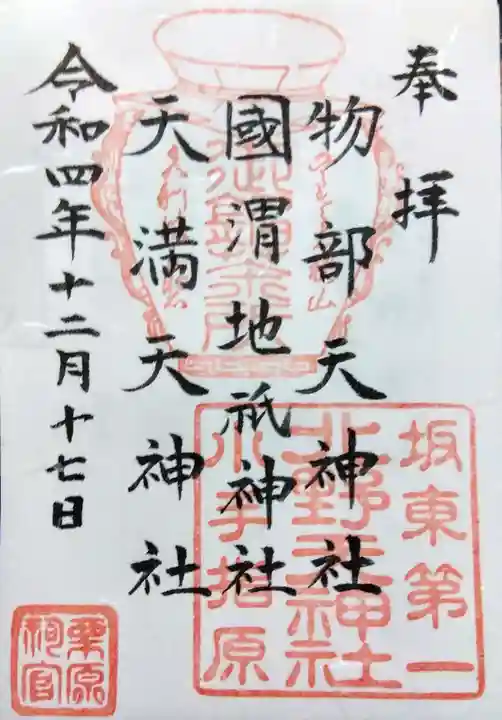 奉拝
物部天神社
國渭地祇神社
天満天神社
令和四年十二月十七日
坂東第一
北野天神社
小手指原
栗原
祠官